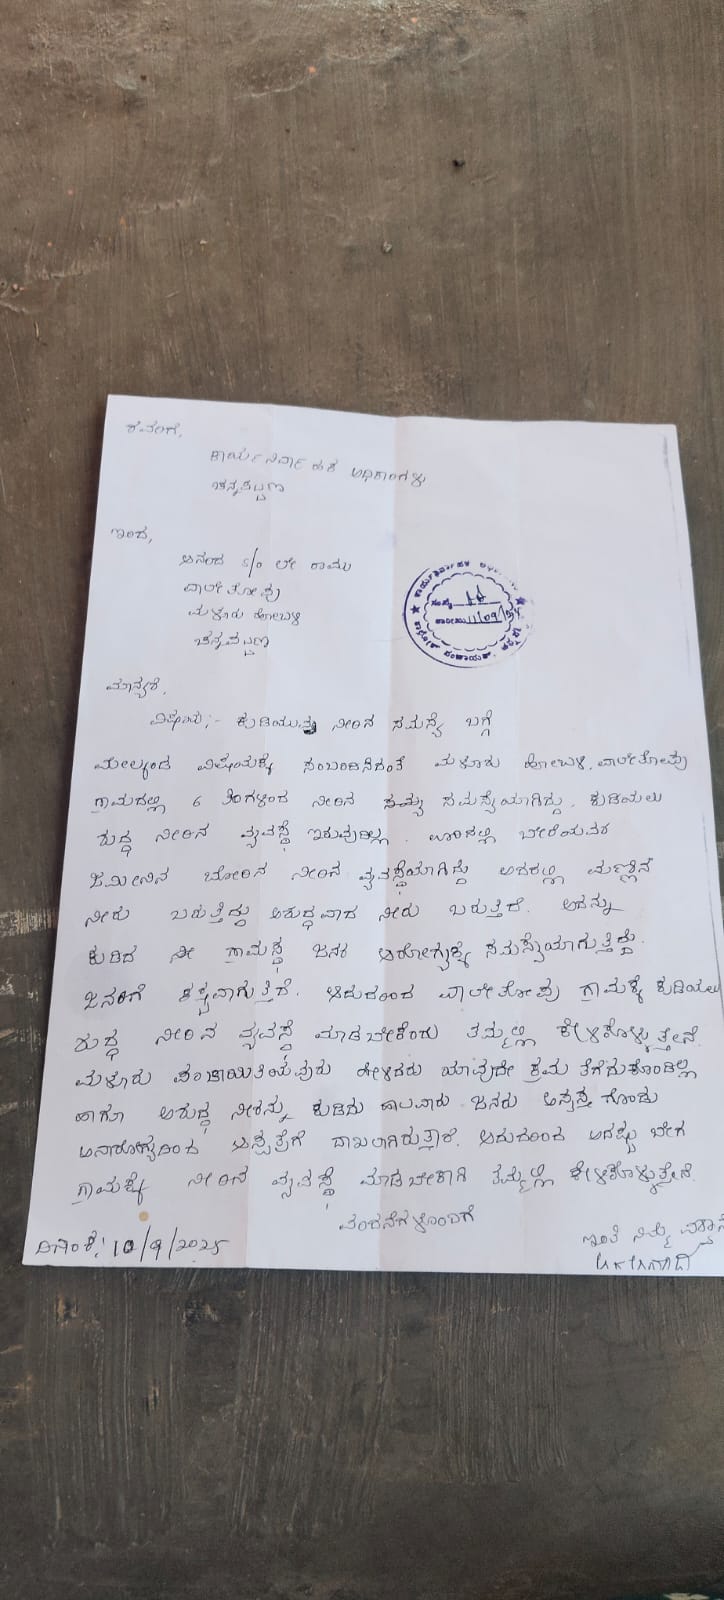 ರವರಿಗೆ,
ಕಾರ್ಯನಿರ್ವಾಹಕ ಅಧಿಕಾರಿಗಳು
ಚನ್ನಪಟ್ಟಣ
ಇಂದ,
ಆನಂದ S/o ಲೇ ರಾಮು
ವಾಲೇತೋಪು
ಮಳೂರು ಹೋಬಳಿ
ಚನ್ನಪಟ್ಟಣ
ತಾರೀಖು 11/09/
ಮಾನ್ಯರೆ,
ವಿಷಯ:- ಕುಡಿಯುವ ನೀರಿನ ಸಮಸ್ಯೆ ಬಗ್ಗೆ
ಮೇಲ್ಕಂಡ ವಿಷಯಕ್ಕೆ ಸಂಬಂದಿಸಿದಂತೆ ಮಳೂರು ಹೋಬಳಿ, ವಾಲೇತೋಪು
ಗ್ರಾಮದಲ್ಲಿ 6 ತಿಂಗಳಿಂದ ನೀರಿನ ಸಮಸ್ಯೆಯಾಗಿದ್ದು, ಕುಡಿಯಲು
ಶುದ್ಧ ನೀರಿನ ವ್ಯವಸ್ಥೆ ಇರುವುದಿಲ್ಲ. ಊರಿನಲ್ಲಿ ಬೇರೆಯವರ
ಜಮೀನಿನ ಬೋರಿನ ನೀರಿನ ವ್ಯವಸ್ಥೆಯಾಗಿದ್ದು ಅದರಲ್ಲಿ ಮಣ್ಣಿನ
ನೀರು ಬರುತ್ತಿದ್ದು ಅಶುದ್ಧವಾದ ನೀರು ಬರುತ್ತಿದೆ. ಅದನ್ನು
ಕುಡಿದ ಗ್ರಾಮಸ್ಥ ಜನರ ಆರೋಗ್ಯಕ್ಕೆ ಸಮಸ್ಯೆಯಾಗುತ್ತಿದ್ದು.
ಜನರಿಗೆ ಕಷ್ಟವಾಗುತ್ತಿದೆ. ಆದುದರಿಂದ ವಾಲೇತೋಪು ಗ್ರಾಮಕ್ಕೆ ಕುಡಿಯಲು
ಶುದ್ಧ ನೀರಿನ ವ್ಯವಸ್ಥೆ ಮಾಡಬೇಕೆಂದು ತಮ್ಮಲ್ಲಿ ಕೇಳಿಕೊಳ್ಳುತ್ತೇನೆ.
ಮಳೂರು ಪಂಚಾಯಿತಿಯವುರು ಹೇಳಿದರು ಯಾವುದೇ ಕ್ರಮ ತೆಗೆದುಕೊಂಡಿಲ್ಲ
ಹಾಗೂ ಅಶುದ್ಧ ನೀರನ್ನು ಕುಡಿದು ಹಾಲವಾರು ಜನರು ಅಸ್ವಸ್ತ ಗೊಂಡು
ಅನಾರೋಗ್ಯದಿಂದ ಆಸ್ಪತ್ರೆಗೆ ದಾಖಲಾಗಿರುತ್ತಾರೆ. ಆದುದರಿಂದ ಆದಷ್ಟು ಬೇಗ
ಗ್ರಾಮಕ್ಕೆ ನೀರಿನ ವ್ಯವಸ್ಥೆ ಮಾಡಬೇಕಾಗಿ ತಮ್ಮಲ್ಲಿ ಕೇಳಿಕೊಳ್ಳುತ್ತೇನೆ.
ವಂದನೆಗಳೊಂದಿಗೆ
ದಿನಾಂಕ: 10/9/2025
ಇಂತಿ ನಿಮ್ಮ